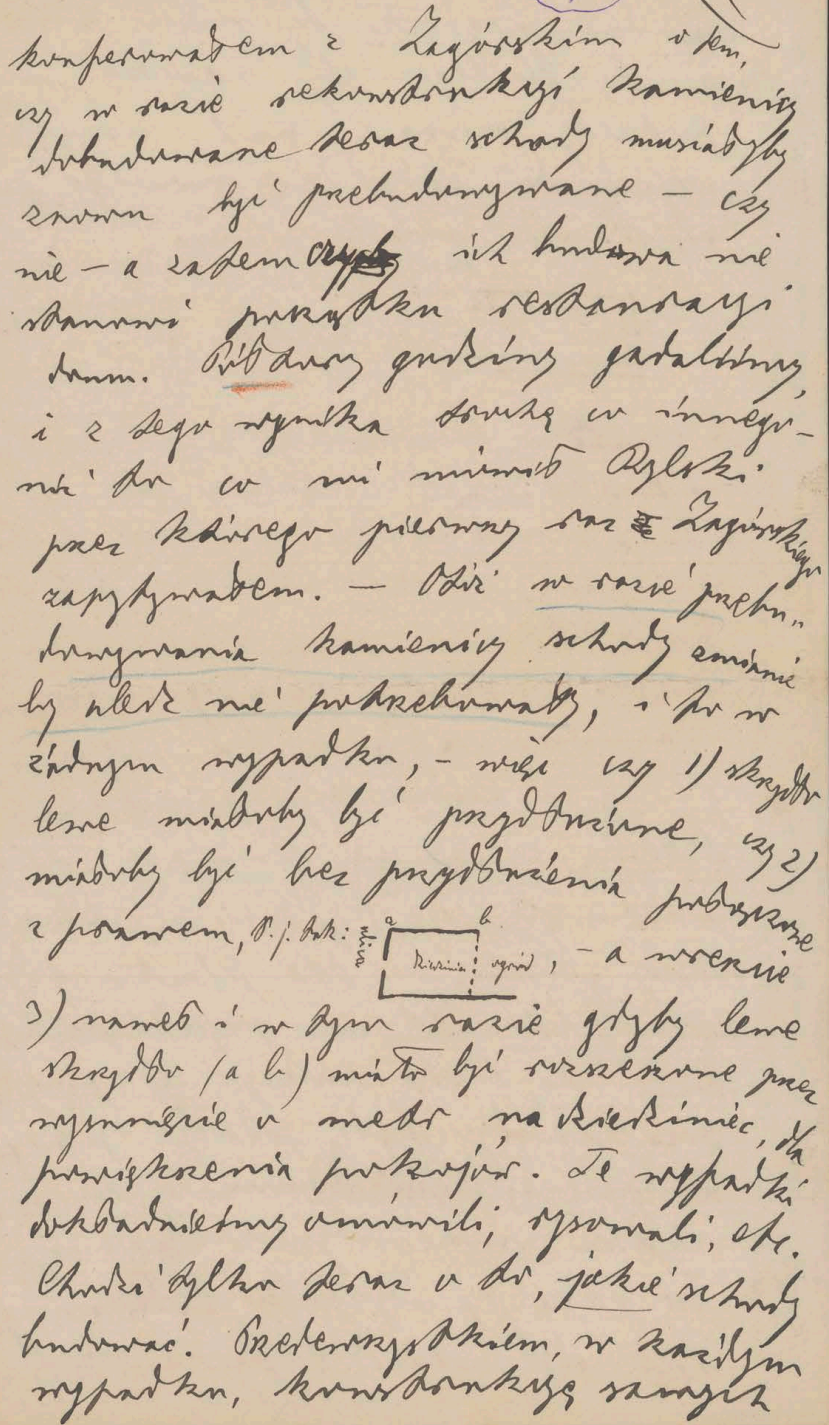 konferowałem z Zagórskim o tem,
czy w razie rekonstrukcyi kamienicy
dobudowane teraz schody musiałyby
znowu być przebudowywane — czy
nie — a zatem czyby ich budowa nie
stanowi początku restauracyi
domu. Półtory godziny gadaliśmy,
i z tego wynika trochę co innego —
niż to co mi mówił Rylski
przez którego pierwszy raz Zagórskiego
zapytywałem. — Otóż w razie przebu„
dowywania kamienicy schody zmianie
by uledz nie potrzebowały, i to w
żadnym wypadku, — więc czy 1) skrzydło
lewe miałoby być przydłużone, czy 2)
miałoby być bez przydłużenia połączone
z prawem, t.j. tak: ulica a b dziedziniec ogród, — a wreszcie
3) nawet i w tym razie gdyby lewe
skrzydło (a b) miało być rozszerzone przez
wysunięcie o metr na dziedziniec, dla
powiększenia pokojów. Te wypadki
dokładnieśmy omówili, rysowali, etc.
Chodzi tylko teraz o to, jakie schody
budować. Przedewszystkiem, w każdym
wypadku, konstrukcyę samych